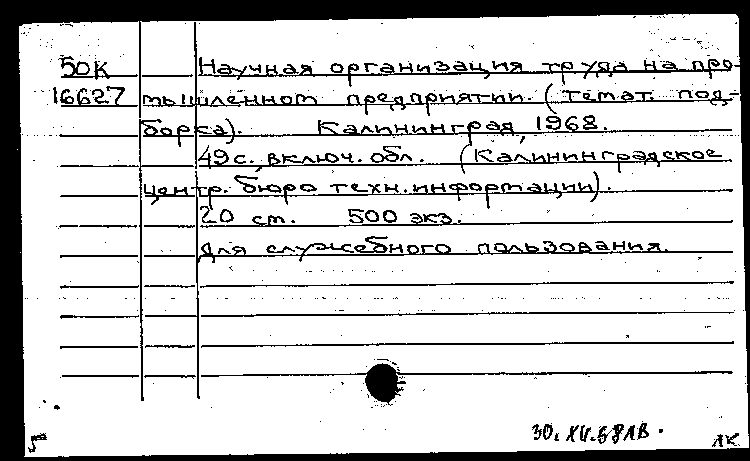 50К Научная организация труда на про-
16627 мышленном предприятии. (Темат. под-
борка). Калининград, 1968.
49с. включ. обл. (Калининградское
центр. бюро техн. информации).
20 см. 500 экз.
Для служебного пользования.
5 ЛК